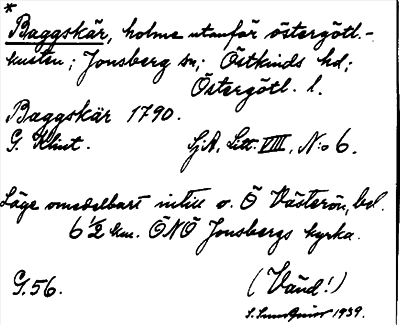 *
Baggskär, holme utanför östergötl.-
kusten; Jonsberg sn; Östkinds hd;
Östergötl. l.
Baggskär 1790.
G. Klint. SjA, Litt. VIII, N:o 6.
Läge omedelbart intill o. Ö Västerön, bel.
6 1/2 km. ÖNÖ Jonsbergs kyrka.
G.56. (Vänd!)
1939.